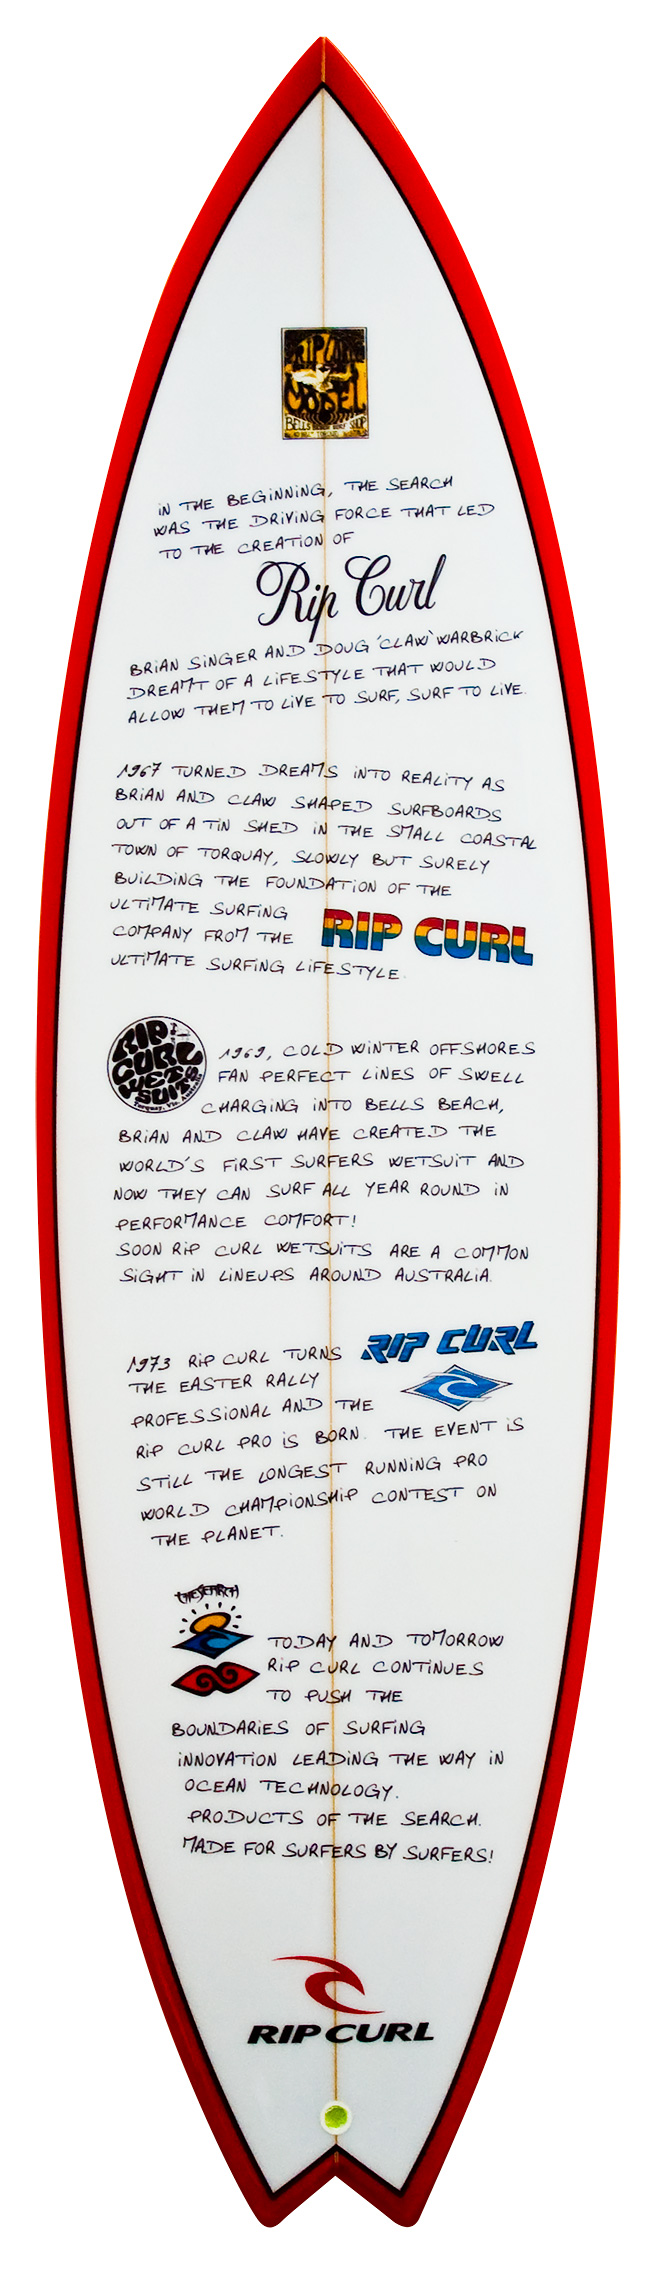 RIP CURL
MODEL
BELLS
IN THE BEGINNING, THE SEARCH
WAS THE DRIVING FORCE THAT LED
TO THE CREATION OF
Rip Curl
BRIAN SINGER AND DOUG 'CLAW' WARBRICK
DREAMT OF A LIFESTYLE THAT WOULD
ALLOW THEM TO LIVE TO SURF, SURF TO LIVE.
1967 TURNED DREAMS INTO REALITY AS
BRIAN AND CLAW SHAPED SURFBOARDS
OUT OF A TIN SHED IN THE SMALL COASTAL
TOWN OF TORQUAY, SLOWLY BUT SURELY
BUILDING THE FOUNDATION OF THE
ULTIMATE SURFING
COMPANY FROM THE
RIP CURL
ULTIMATE SURFING LIFESTYLE.
RIP
CURL
WET
SUITS
Torquay, Vic. Australia
1969, COLD WINTER OFFSHORES
FAN PERFECT LINES OF SWELL
CHARGING INTO BELLS BEACH,
BRIAN AND CLAW HAVE CREATED THE
WORLD'S FIRST SURFERS WETSUIT AND
NOW THEY CAN SURF ALL YEAR ROUND IN
PERFORMANCE COMFORT!
SOON RIP CURL WETSUITS ARE A COMMON
SIGHT IN LINEUPS AROUND AUSTRALIA.
RIP CURL
1973 RIP CURL TURNS
THE EASTER RALLY
PROFESSIONAL AND THE
RIP CURL PRO IS BORN. THE EVENT IS
STILL THE LONGEST RUNNING PRO
WORLD CHAMPIONSHIP CONTEST ON
THE PLANET.
THE SEARCH
TODAY AND TOMORROW
RIP CURL CONTINUES
TO PUSH THE
BOUNDARIES OF SURFING
INNOVATION LEADING THE WAY IN
OCEAN TECHNOLOGY.
PRODUCTS OF THE SEARCH.
MADE FOR SURFERS BY SURFERS!
RIP CURL